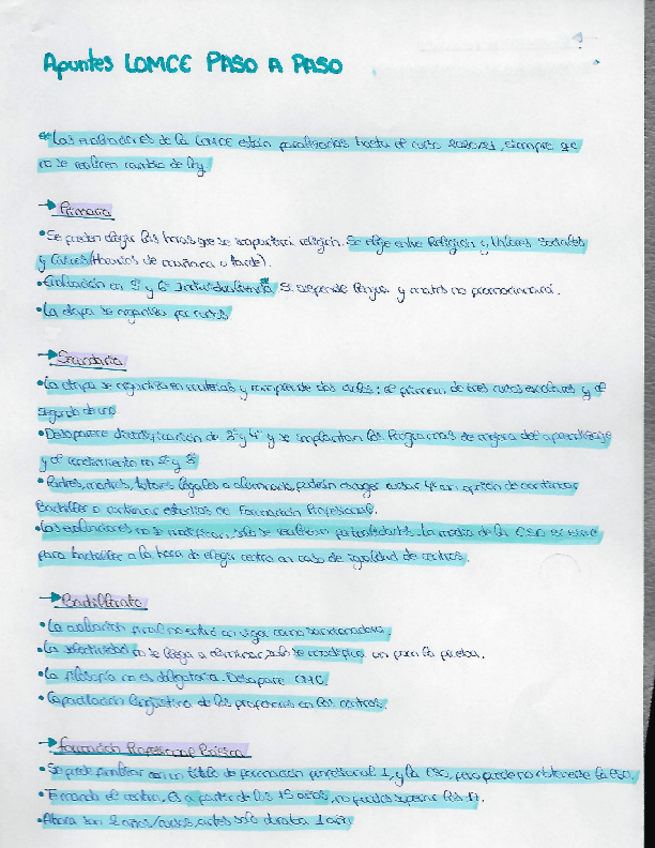 Apuntes LOMCE PASO A PASO
*Las evaluaciones de la LOMCE están paralizadas hasta el curso, siempre que
no se realicen cambio de ley.
→ Primaria
•Se pueden elegir las horas que se impartirá religión. Se elige entre Religión y Valores Sociales
y Cívicos (Horarios de mañana o tarde).
•Evaluación en 3º y 6º. Si suspende lengua y mates no promocionará.
•La etapa se organiza por cursos
→ Secundaria
•La etapa se organiza en materias y comprende dos ciclos: el primero de tres cursos escolares y el
segundo de uno
•Desaparece diversificación de 3º y 4º y se implantan los Programas de mejora del aprendizaje
y el rendimiento en 2º y 3º
•Padres, madres, tutores legales o alumnado podrán escoger cursar 4º con opción de continuar
Bachiller o continuar estudios de Formación Profesional.
•Las evaluaciones no se, solo se realizan. La media de la ESO se
para bachiller a la hora de elegir centro en caso de igualdad de centros.
→ Bachillerato
•La evaluación final no entró en vigor como sancionadora.
•La selectividad no se llega a eliminar, solo se modifica un poco la prueba.
•La filosofía no es obligatoria. Desaparece CMC.
•Capacitación lingüística de los profesores en los centros.
→ Formación Profesional Básica
•Se puede finalizar con un título de formación profesional 1, y la ESO, pero puede no obtenerse la ESO.
•el centro. Es a partir de los 15 años, no puedes superar los 17.
•Ahora son 2 años/cursos, antes solo duraba 1 año